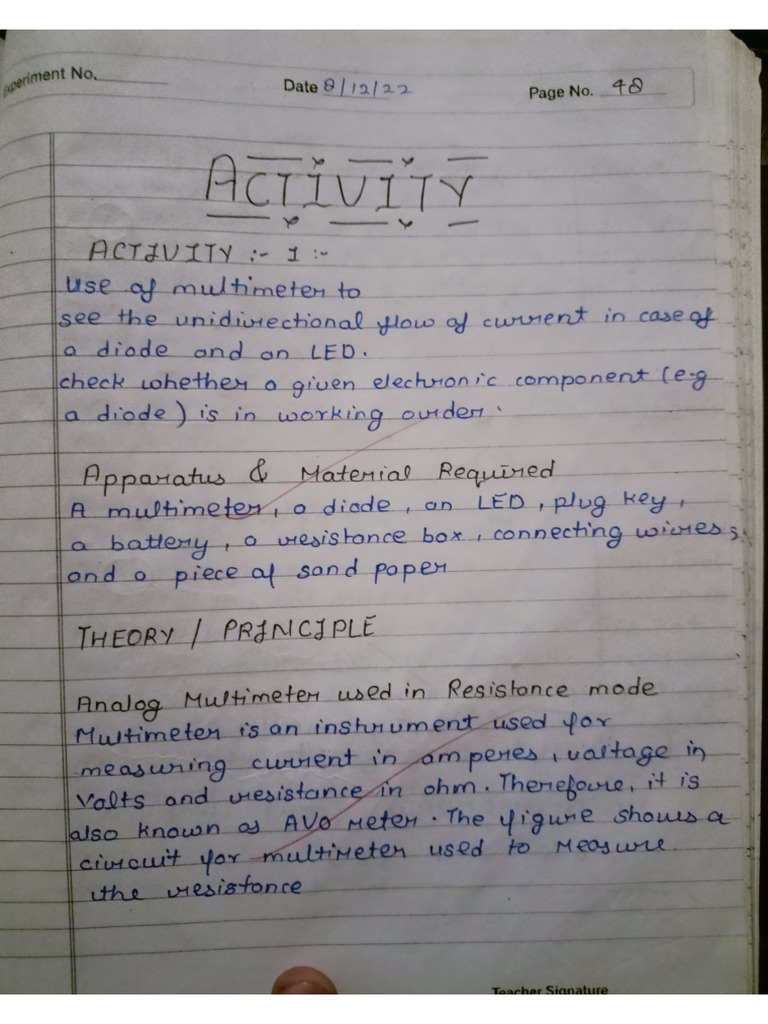 Experiment No.
Date 8/12/22
Page No. 48
ACTIVITY
ACTIVITY :- 1 :-
Use of multimeter to
see the unidirectional flow of current in case of
a diode and an LED.
check whether a given electronic component (e.g
a diode) is in working order.
Apparatus & Material Required
A multimeter, a diode, an LED, plug key,
a battery, a resistance box, connecting wires,
and a piece of sand paper
THEORY / PRINCIPLE
Analog Multimeter used in Resistance mode
Multimeter is an instrument used for
measuring current in amperes, valtage in
Valts and resistance in ohm. Therefore, it is
also known as AVO meter. The figure shows a
circuit for multimeter used to measure
the resistance
Teacher Signature